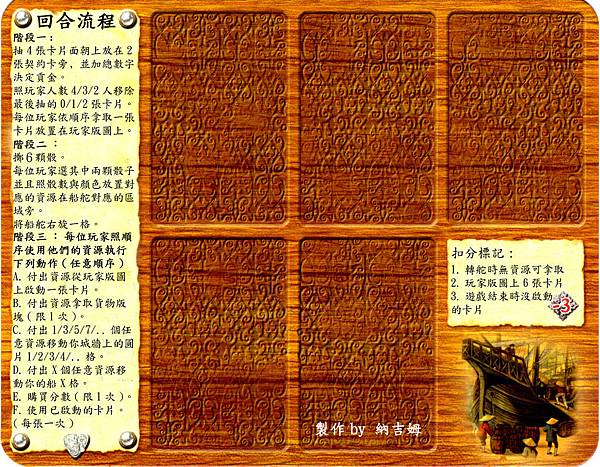 回合流程
階段一:
抽4張卡片面朝上放在2
張契約卡旁，並加總數字
決定資金。
照玩家人數4/3/2人移除
最後抽的0/1/2張卡片。
每位玩家依順序拿取一張
卡片放置在玩家版圖上。
階段二：
擲6顆骰。
每位玩家選其中兩顆骰子
並且照骰數與顏色放置對
應的資源在船舵對應的區
域旁。
將船舵右旋一格。
階段三：每位玩家照順
序使用他們的資源執行
下列動作(任意順序)
A. 付出資源從玩家版圖
上啟動一張卡片。
B. 付出資源拿取貨物版
塊(限1次)。
C. 付出1/3/5/7/..個任
意資源移動你城牆上的圖
片1/2/3/4/..格。
D. 付出X個任意資源移
動你的船X格。
E. 購買分數(限1次)。
F. 使用已啟動的卡片。
(每張一次)
扣分標記：
1. 轉舵時無資源可拿取
2. 玩家版圖上6張卡片
3. 遊戲結束時沒啟動
的卡片
-3
製作by 納吉姆